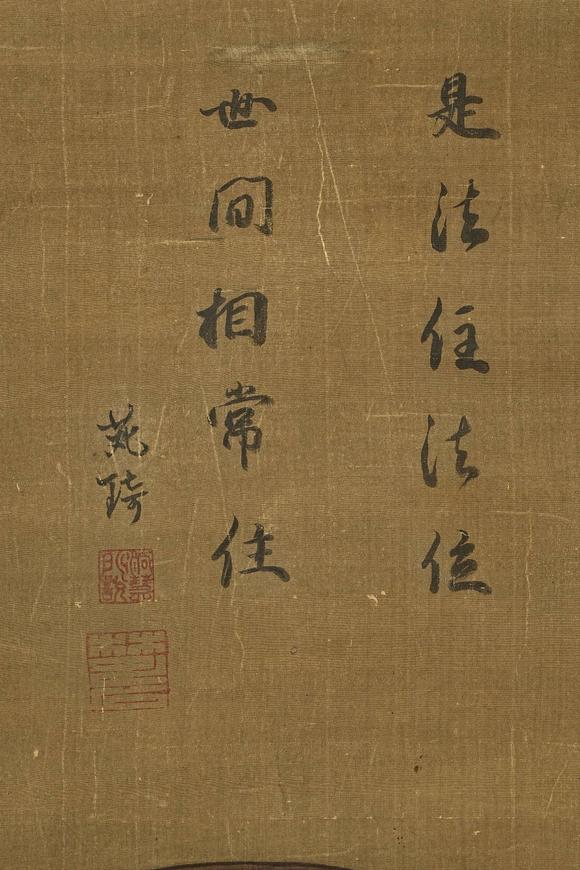 是法住法位
世間相常住
梵琦